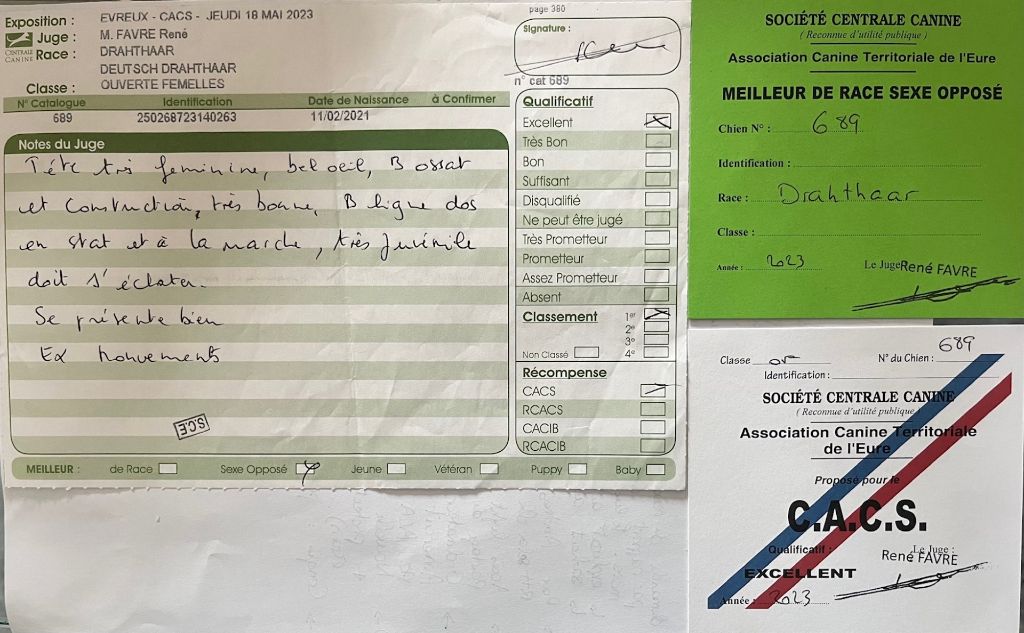 Exposition : EVREUX - CACS - JEUDI 18 MAI 2023
CENTRALE CANINE
Juge : M. FAVRE René
Race : DRAHTHAAR
DEUTSCH DRAHTHAAR
Classe : OUVERTE FEMELLES
page 380
Signature :
n° cat 689
N° Catalogue Identification Date de Naissance à Confirmer
689 250268723140263 11/02/2021
Notes du Juge
Tête très feminine, bel oeil, B ossat
et Construction, très bonne, B ligne dos
en stat et à la marche, très juvénile
doit s'éclater.
Se présente bien
Ex mouvements
S.C.E
Qualificatif
Excellent
Très Bon
Bon
Suffisant
Disqualifié
Ne peut être jugé
Très Prometteur
Prometteur
Assez Prometteur
Absent
Classement 1er
2e
3e
Non Classé 4e
Récompense
CACS
RCACS
CACIB
RCACIB
MEILLEUR : de Race Sexe Opposé Jeune Vétéran Puppy Baby
SOCIÉTÉ CENTRALE CANINE
( Reconnue d'utilité publique )
Association Canine Territoriale de l'Eure
MEILLEUR DE RACE SEXE OPPOSÉ
Chien N° : 689
Identification :
Race : Drahthaar
Classe :
Année : 2023 Le Juge René FAVRE
Classe or N° du Chien : 689
Identification :
SOCIÉTÉ CENTRALE CANINE
( Reconnue d'utilité publique )
Association Canine Territoriale
de l'Eure
Proposé pour le
C.A.C.S.
Qualificatif : Le Juge :
René FAVRE
EXCELLENT
Année : 2023